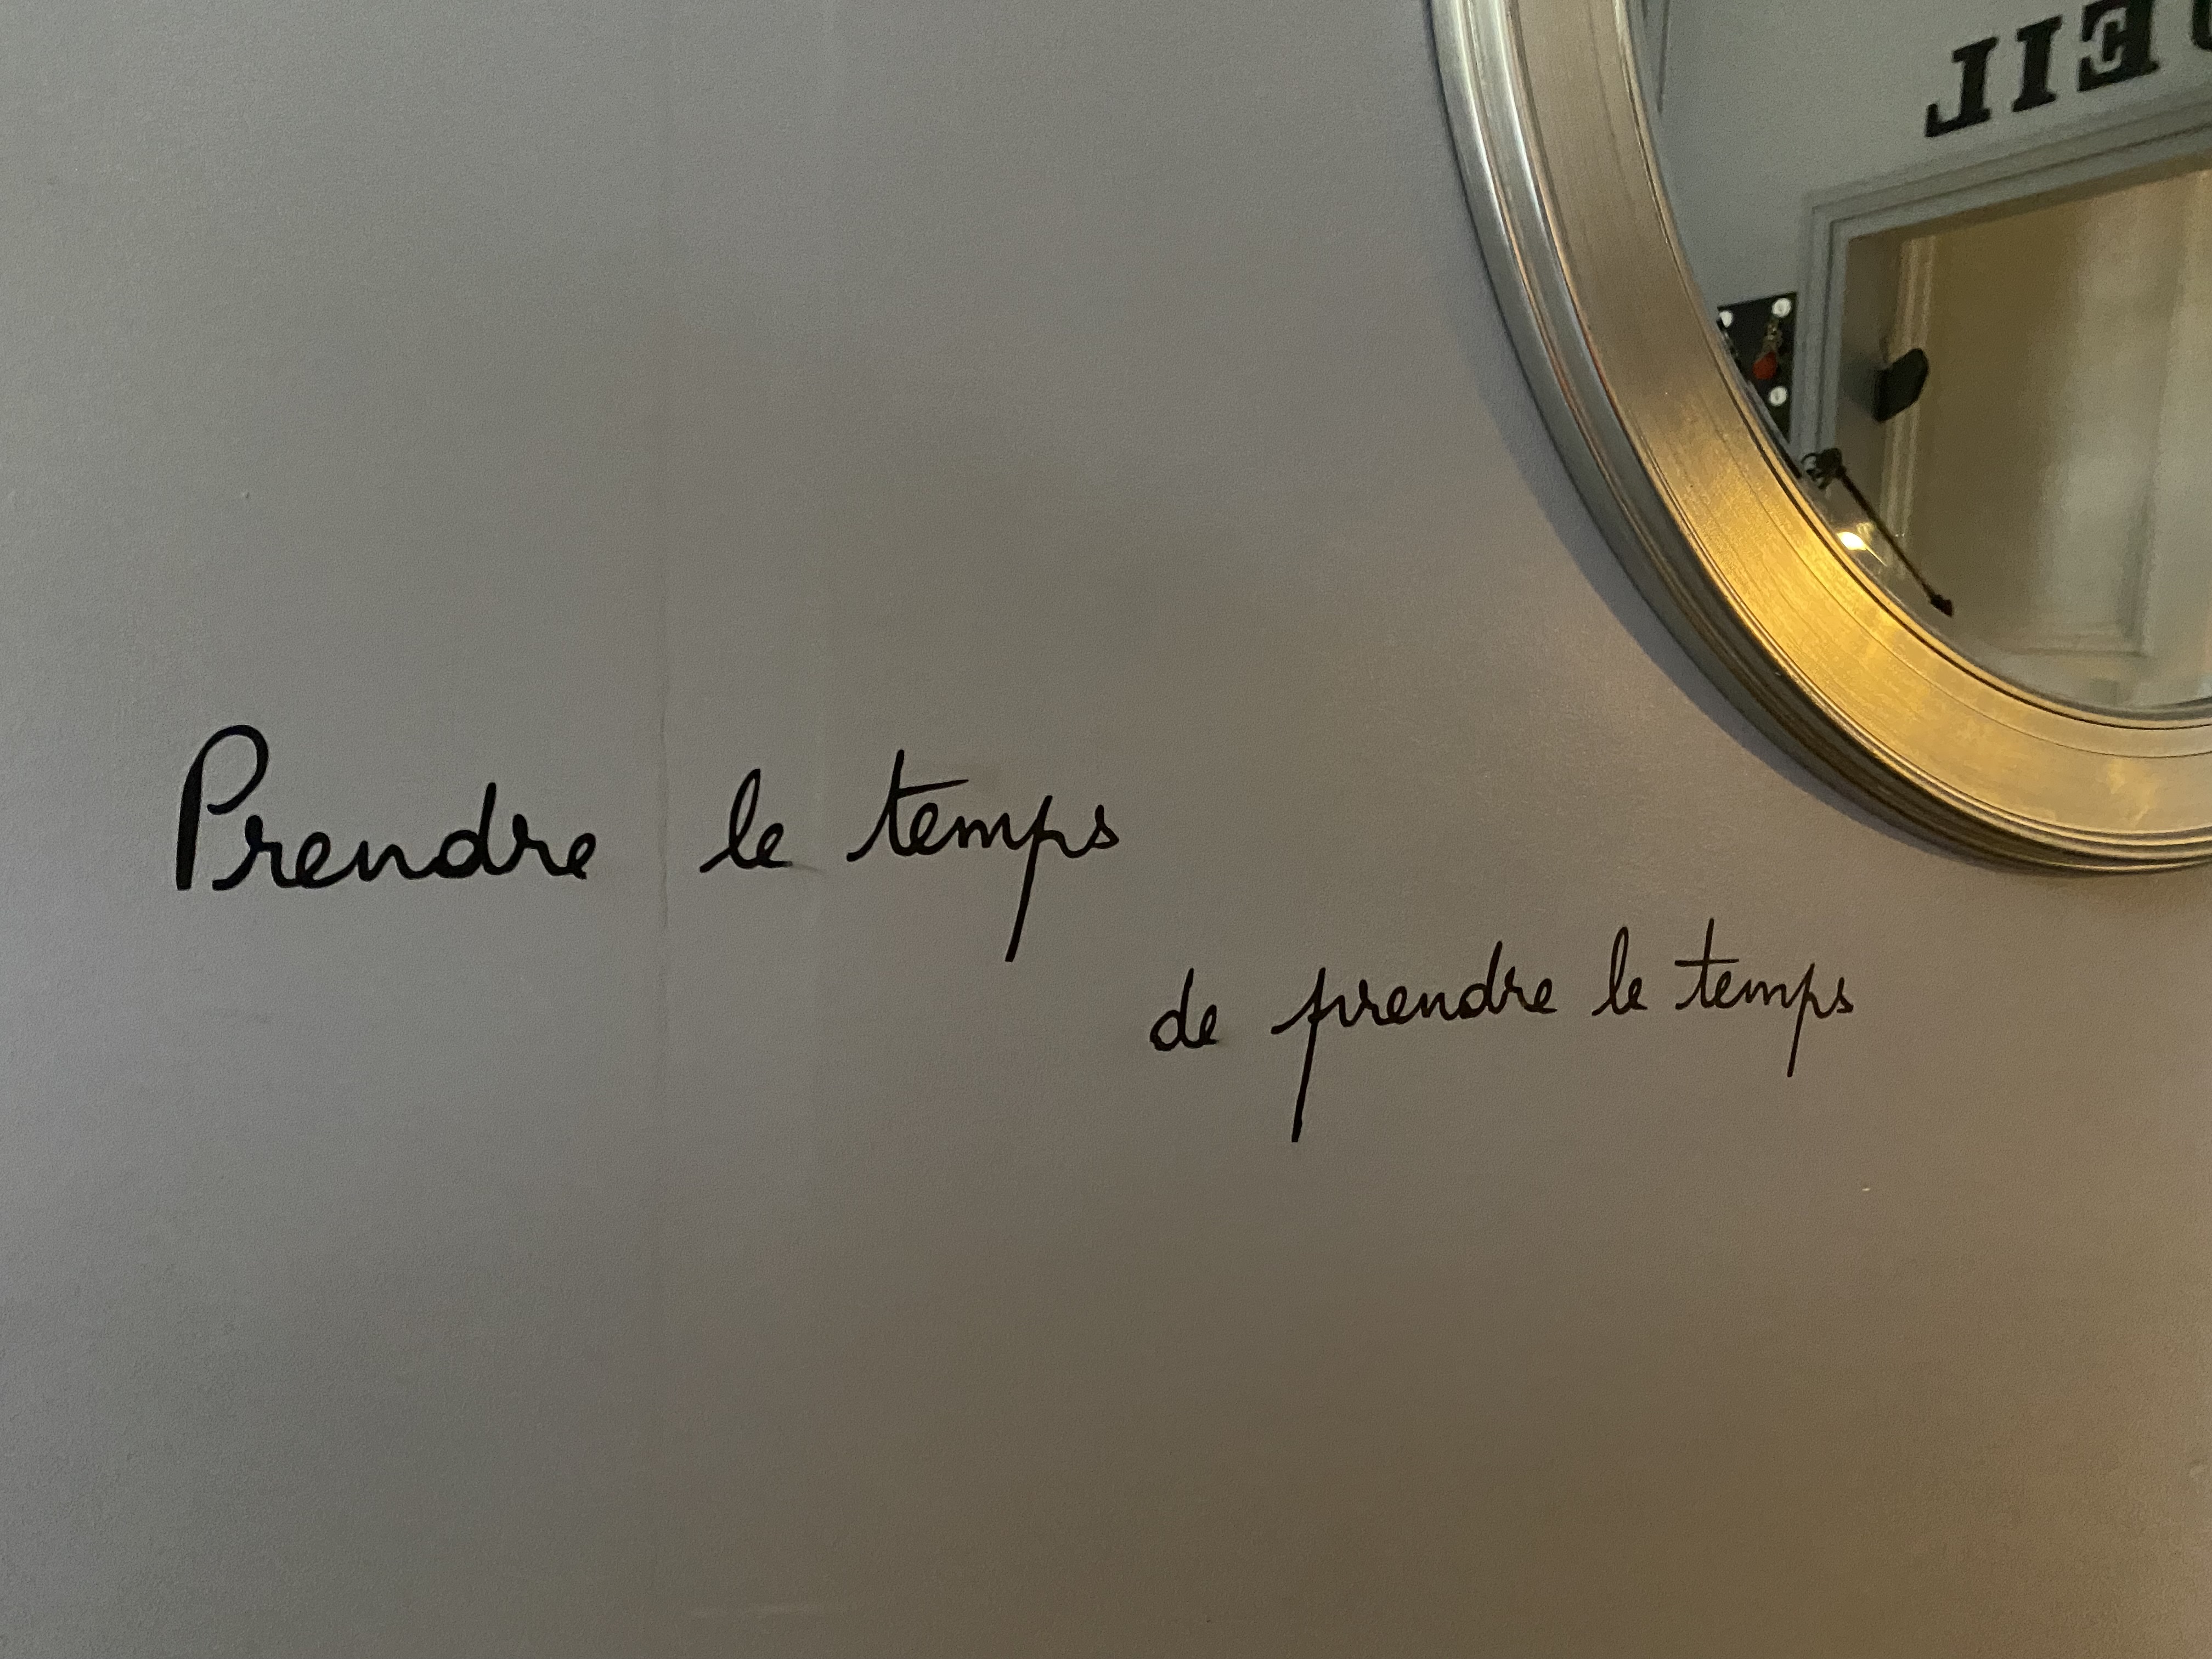 EIL
Prendre le temps
de prendre le temps